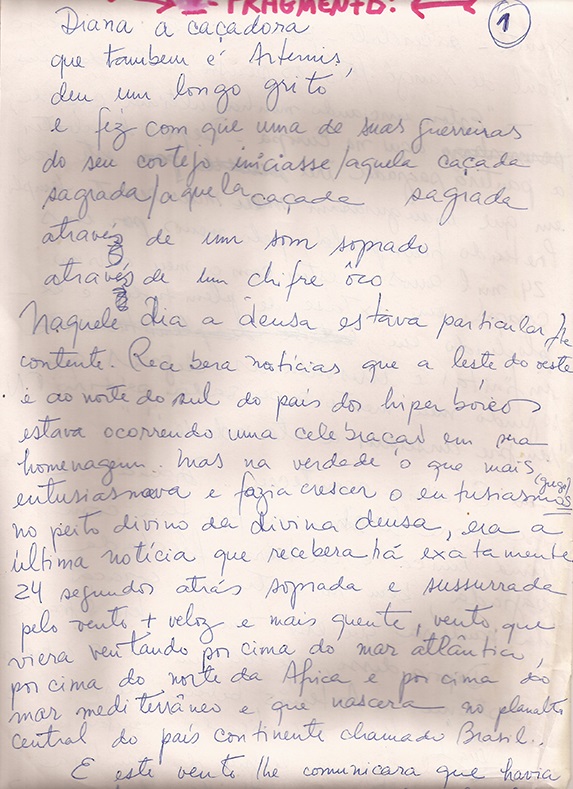 I - FRAGMENTO:
1
Diana a caçadora
que tambem é Artemis,
deu um longo grito
e fêz com que uma de suas guerreiras
do seu cortejo iniciasse/aquela caçada
sagrada/aquela caçada sagrada
através de um som soprado
através de um chifre ôco
Naquele dia a deusa estava particular/te
contente. Recebera notícias que a leste do oeste
e ao norte do sul do país dos hiperbóreos
estava ocorrendo uma celebração em sua
homenagem.. Mas na verdade o que mais
(grego)
entusiasmava e fazia crescer o entusiasmos
no peito divino da divina deusa, era a
última notícia que recebera há exatamente
24 segundos atrás soprada e sussurrada
pelo vento + veloz e mais quente, vento que
viera ventando por cima do mar atlântico,
por cima do norte da Africa e por cima do
mar mediterrâneo e que nascera no planalto
central do país continente chamado Brasil..
E este vento lhe comunicara que havia